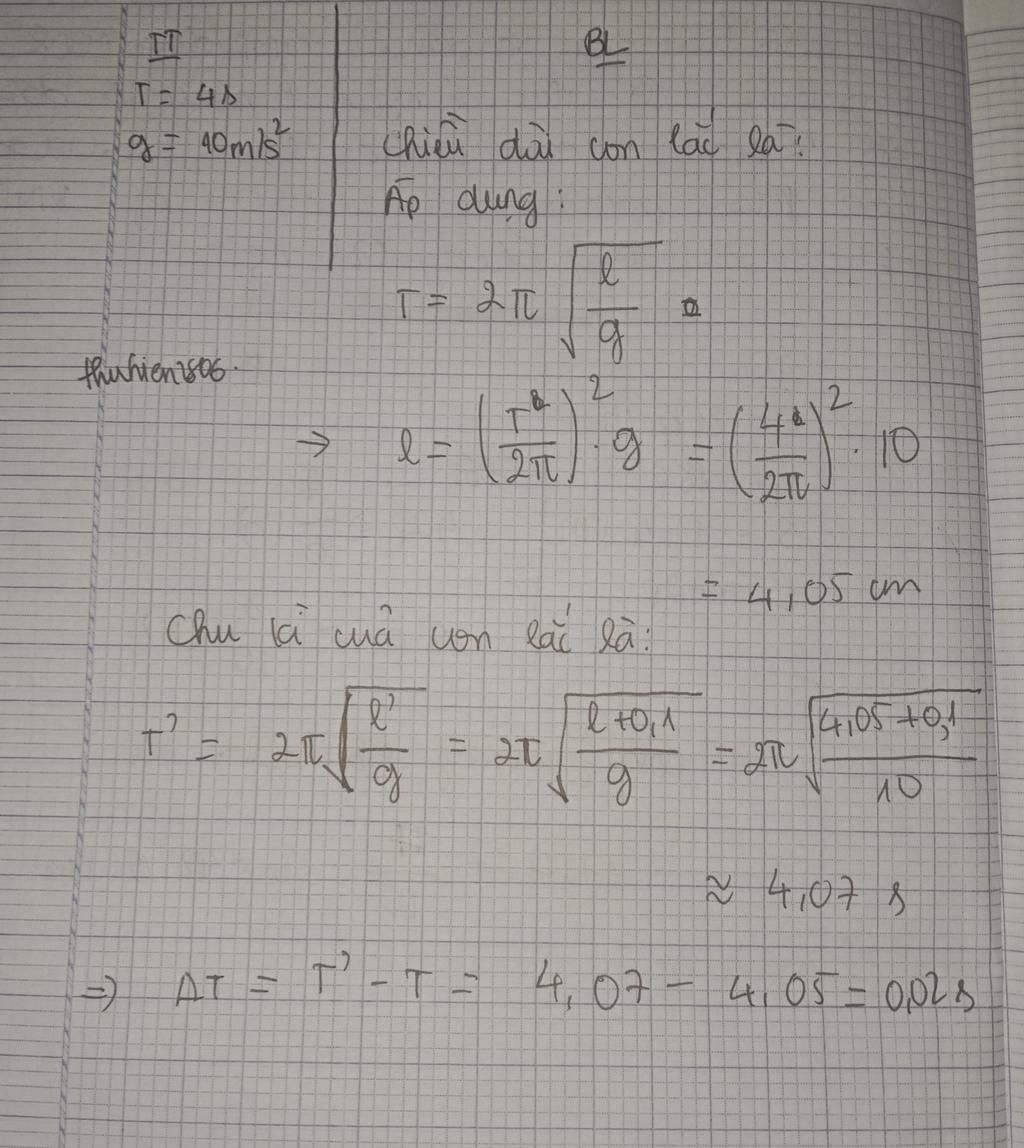 TT
T = 4s
g = 10m/s²
BL
Chiều dài con lắc là:
Áp dụng:
T = 2π √(l/g)
thuhien2806.
→ l = (T/2π)² . g = (4/2π)² . 10
= 4,05 cm
Chu kì cuả con lắc là:
T' = 2π √(l'/g) = 2π √((l+0,1)/g) = 2π √((4,05+0,1)/10)
≈ 4,07 s
⇒ ΔT = T' - T = 4,07 - 4,05 = 0,02s